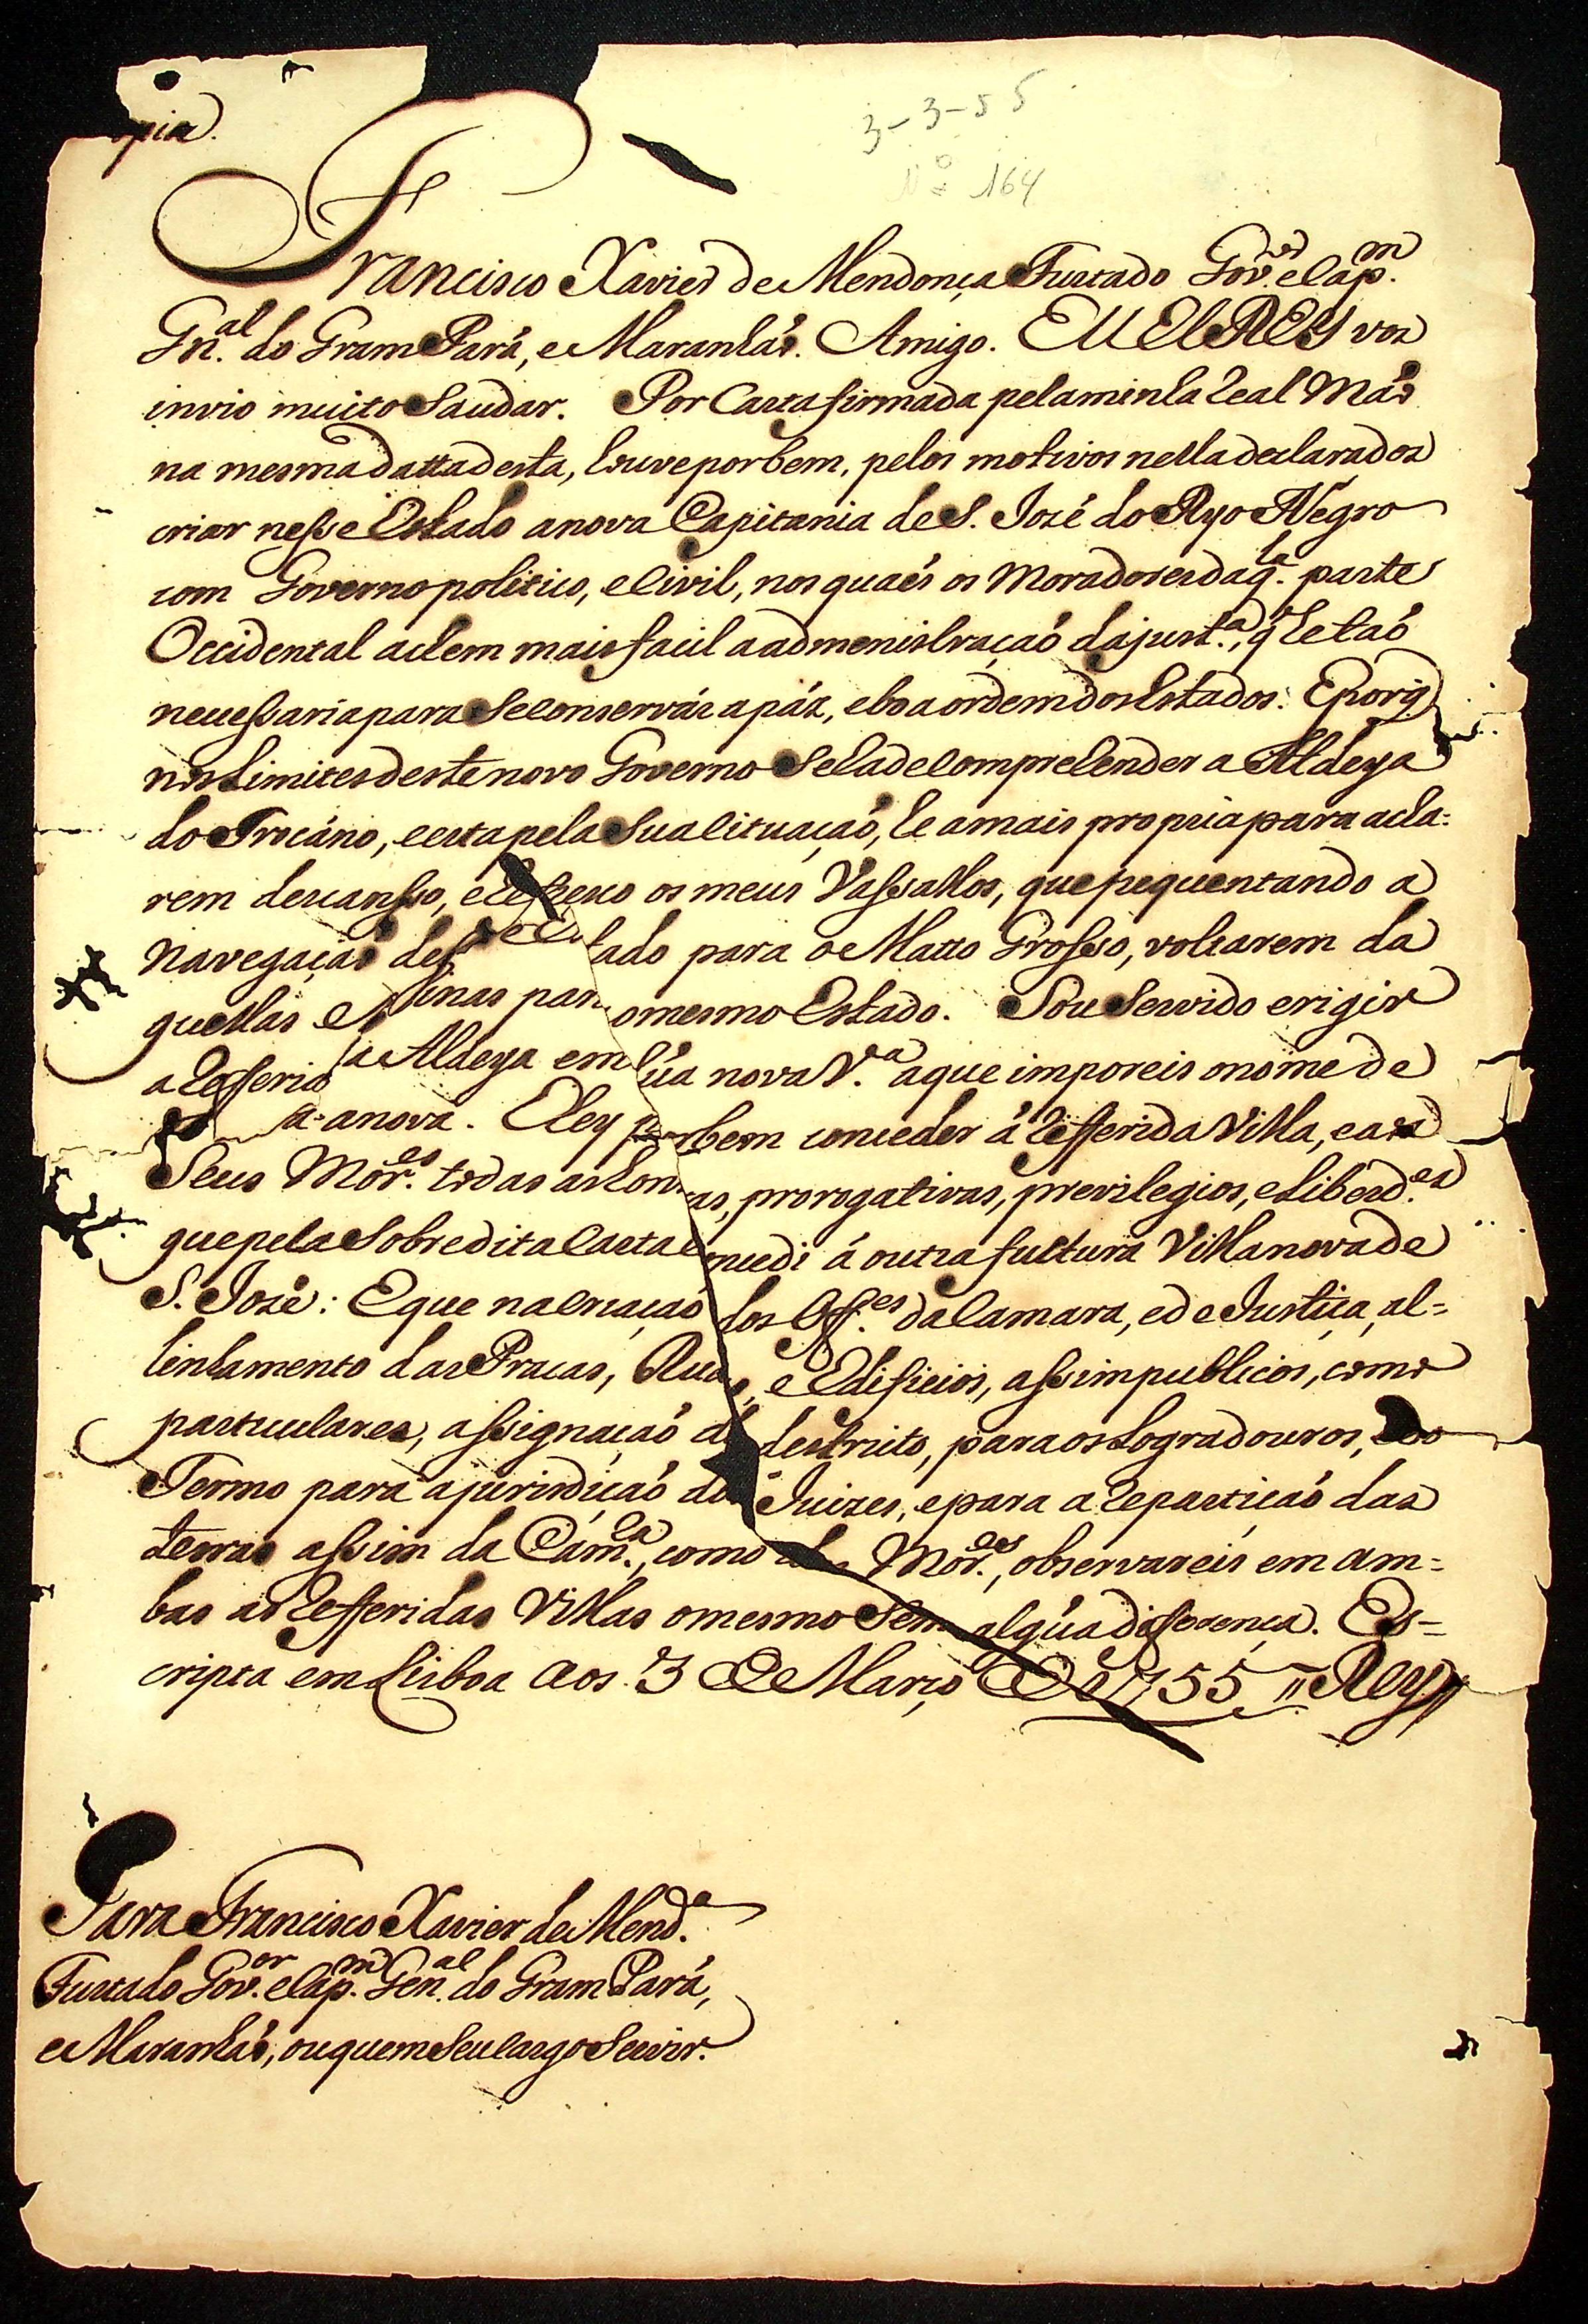 opia.
3-3-55
Nº 164
Francisco Xavier de Mendonça Furtado Gov.or e Cap.m
Gn.al do Gram Pará, e Maranhaõ. Amigo. EU ELREY vos
invio muito Saudar. Por Carta firmada pela minha Real Maõ
na mesma datta desta, houve por bem, pelos motivos nella declarados
criar nesse Estado a nova Capitania de S. Jozé do Ryo Negro
com Governo politico, e Civil, nos quaés os Moradores daq.la parte
Occidental achem mais facil a admenistraçaõ da just.a, q̃ he taõ
necessaria para se conservár a páz, e boa ordem dos Estados: E porq̃
nos Limites deste novo Governo se ha de comprehender a Aldeya
do Trocáno, e esta pela sua situaçaõ, he a mais propria para acha-
rem descansso, e refresco os meus Vassallos, que frequentando a
navegaçaõ des tado para o Matto Grosso, voltarem da
quellas Minas par o mesmo Estado. Sou Servido erigir
a Refferida Aldeya em hũa nova V.a a que imporeis o nome de
a-anova. E hey por bem conceder á Refferida Villa, e aos
Seus Mor.es todas as hon as, prorogativas, previlegios, e liberd.es
que pela Sobredita Carta concedi á outra futtura Villa nova de
S. Jozê: E que na Criaçaõ dos Off.es da Camara, e de Justiça, al-
linhamento das Pracas, Ruas, e Edificios, assim publicos, como
particulares, assignaçaõ de destricto, para os Logradouros, e do
Termo para a jurisdicaõ dos Juizes, e para a Reparticaõ das
terras assim da Cam.ra, como dos Mor.es, observareis em am-
bas as Refferidas Villas o mesmo Sem algũa differença. Es-
cripta em Lisboa aos 3 de Março de 1755 // Rey //
Para Francisco Xavier de Mend.a
Furtado Gov.or e Cap.m Gen.al do Gram Pará,
e Maranhaõ, ou quem Seu Cargo Servir.